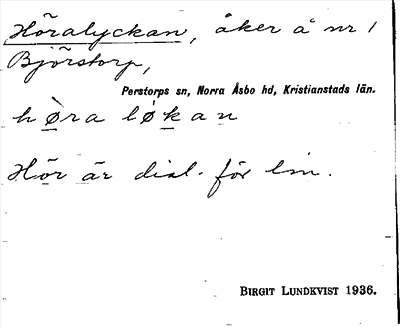 Höralyckan, åker å nr 1
Björstorp,
Perstorps sn, Norra Åsbo hd, Kristianstads län.
hø̀ra lǿkan
Hör är dial. för lin.
BIRGIT LUNDKVIST 1936.